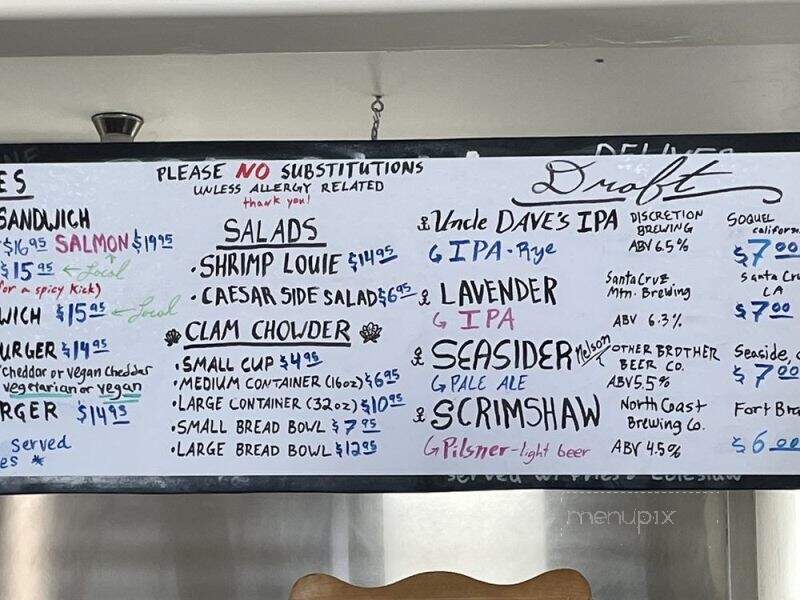 ES
SANDWICH
$16.95 SALMON $19.95
$15.95 ← Local
for a spicy kick)
WICH $15.95 ← Local
URGER $14.95
cheddar or vegan cheddar
vegetarian or vegan
RGER $14.95
served
es *
PLEASE NO SUBSTITUTIONS
UNLESS ALLERGY RELATED
thank you!
SALADS
• SHRIMP LOUIE $14.95
• CAESAR SIDE SALAD $6.95
CLAM CHOWDER
• SMALL CUP $4.95
• MEDIUM CONTAINER (16oz) $6.95
• LARGE CONTAINER (32oz) $10.95
• SMALL BREAD BOWL $7.95
• LARGE BREAD BOWL $12.95
DELIVER
Draft
Uncle DAVE'S IPA
IPA - Rye
DISCRETION
BREWING
ABV 6.5%
SOQUEL
californ
$7.00
LAVENDER
IPA
Santa Cruz
Mtn. Brewing
ABV 6.3%
Santa Cru
CA
$7.00
SEASIDER Nelson
PALE ALE
OTHER BROTHER
BEER CO.
ABV 5.5%
Seaside, C
$7.00
SCRIMSHAW
Pilsner - light beer
North Coast
Brewing Co.
ABV 4.5%
Fort Bra
$6.00
served w/ Fries & Coleslaw
menupix